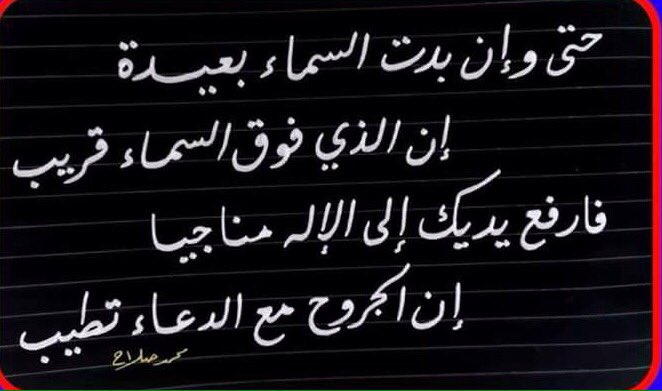 حتى وإن بدت السماء بعيدة
إن الذي فوق السماء قريب
فارفع يديك إلى الإله مناجيا
إن الجروح مع الدعاء تطيب
محمد صلاح